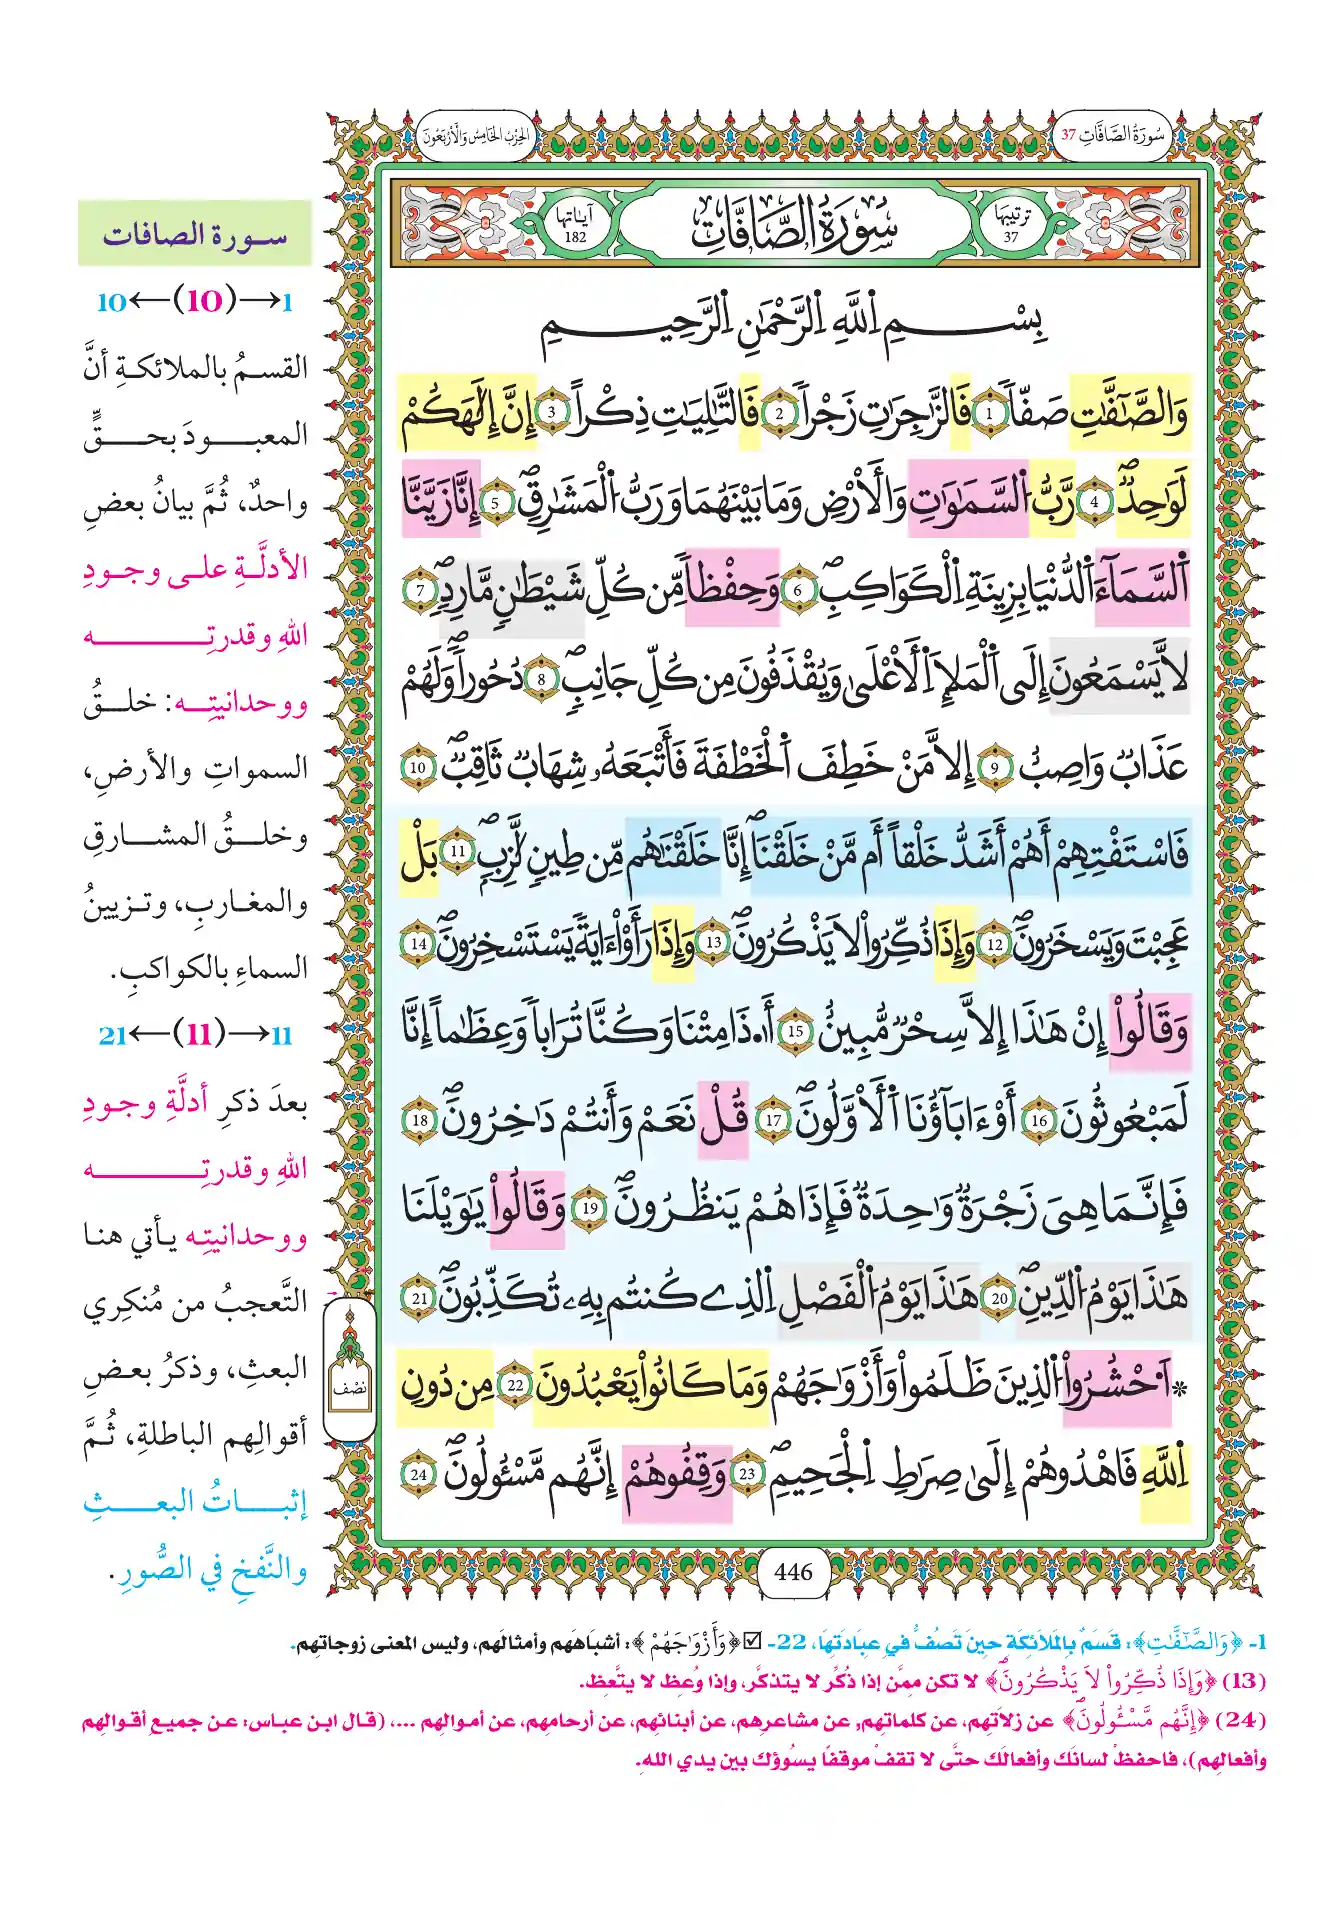 سُورَةُ الصَّافَّاتِ 37
الحِزْبُ الخَامِسُ وَالأَرْبَعُونَ
ترتيبها
37
سُورَةُ الصَّافَّاتِ
آياتها
182
بِسْمِ اِ۬للَّهِ اِ۬لرَّحْمَٰنِ اِ۬لرَّحِيمِ
وَالصَّٰٓفَّٰتِ صَفّاٗ 1 فَالزَّٰجِرَٰتِ زَجْراٗ 2 فَالتَّٰلِيَٰتِ ذِكْراً 3 إِنَّ إِلَٰهَكُمْ
لَوَٰحِدٞۖ 4 رَّبُّ اُ۬لسَّمَٰوَٰتِ وَالَارْضِ وَمَا بَيْنَهُمَا وَرَبُّ اُ۬لْمَشَٰرِقِۖ 5 إِنَّا زَيَّنَّا
اَ۬لسَّمَآءَ اَ۬لدُّنْيَا بِزِينَةِ اِ۬لْكَوَاكِبِۖ 6 وَحِفْظاٗ مِّن كُلِّ شَيْطَٰنٖ مَّارِدٖۖ 7
لَّا يَسْمَعُونَ إِلَى اَ۬لْمَلَإِ اِ۬لَاعْلَىٰ وَيُقْذَفُونَ مِن كُلِّ جَانِبٖۖ 8 دُحُوراٗۖ وَلَهُمْ
عَذَابٞ وَاصِبٌ 9 اِلَّا مَنْ خَطِفَ اَ۬لْخَطْفَةَ فَأَتْبَعَهُۥ شِهَابٞ ثَاقِبٞۖ 10
فَاسْتَفْتِهِمْ أَهُمْ أَشَدُّ خَلْقاً اَم مَّنْ خَلَقْنَاۖ إِنَّا خَلَقْنَٰهُم مِّن طِينٖ لَّازِبِۢۖ 11 بَلْ
عَجِبْتَ وَيَسْخَرُونَۖ 12 وَإِذَا ذُكِّرُواْ لَا يَذْكُرُونَۖ 13 وَإِذَا رَأَوَاْ ءَايَةٗ يَسْتَسْخِرُونَۖ 14
وَقَالُوٓاْ إِنْ هَٰذَآ إِلَّا سِحْرٞ مُّبِينٌ 15 اَ.ذَا مِتْنَا وَكُنَّا تُرَاباٗ وَعِظَٰماً اِنَّا
لَمَبْعُوثُونَ 16 أَوَءَابَآؤُنَا اَ۬لَاوَّلُونَۖ 17 قُلْ نَعَمْ وَأَنتُمْ دَٰخِرُونَۖ 18
فَإِنَّمَا هِيَ زَجْرَةٞ وَٰحِدَةٞ فَإِذَا هُمْ يَنظُرُونَۖ 19 وَقَالُواْ يَٰوَيْلَنَا
هَٰذَا يَوْمُ اُ۬لدِّينِۖ 20 هَٰذَا يَوْمُ اُ۬لْفَصْلِ اِ۬لذِے كُنتُم بِهِۦ تُكَذِّبُونَۖ 21
* اَ۟حْشُرُواْ اُ۬لذِينَ ظَلَمُواْ وَأَزْوَٰجَهُمْ وَمَا كَانُواْ يَعْبُدُونَ 22 مِن دُونِ
اِ۬للَّهِ فَاهْدُوهُمْ إِلَىٰ صِرَٰطِ اِ۬لْجَحِيمِۖ 23 وَقِفُوهُمْ إِنَّهُم مَّسْـُٔولُونَۖ 24
نصْف
446
سورة الصافات
1→(10)←10
القسمُ بالملائكةِ أنَّ
المعبودَ بحقٍّ
واحدٌ، ثُمَّ بيانُ بعضِ
الأدلَّةِ على وجودِ
اللهِ وقدرتِه
ووحدانيتِه: خلقُ
السمواتِ والأرضِ،
وخلقُ المشارقِ
والمغاربِ، وتزيينُ
السماءِ بالكواكبِ.
11→(11)←21
بعدَ ذكرِ أدلَّةِ وجودِ
اللهِ وقدرتِه
ووحدانيتِه يأتي هنا
التَّعجبُ من مُنكِري
البعثِ، وذكرُ بعضِ
أقوالِهم الباطلةِ، ثُمَّ
إثباتُ البعثِ
والنَّفخِ في الصُّورِ.
1- ﴿وَالصَّٰٓفَّٰتِ﴾: قَسَمٌ بِالمَلَائِكَةِ حِينَ تَصُفُّ فِي عِبَادَتِهَا، 22- ☑ ﴿وَأَزْوَٰجَهُمْ﴾: أشبَاهَهم وأمثالَهم، وليس المعنى زوجاتِهم.
(13) ﴿وَإِذَا ذُكِّرُواْ لَا يَذْكُرُونَۖ﴾ لا تكن ممِّن إذا ذُكِّر لا يتذكَّر، وإذا وُعِظ لا يتَّعِظ.
(24) ﴿إِنَّهُم مَّسْـُٔولُونَۖ﴾ عن زلاتهم، عن كلماتهم, عن مشاعرهم، عن أبنائهم، عن أرحامهم، عن أموالهم ...، (قال ابن عباس: عن جميعِ أقوالِهم
وأفعالِهم)، فاحفظْ لسانَك وأفعالَك حتَّى لا تقفْ موقفًا يسُوؤك بين يدي الله.